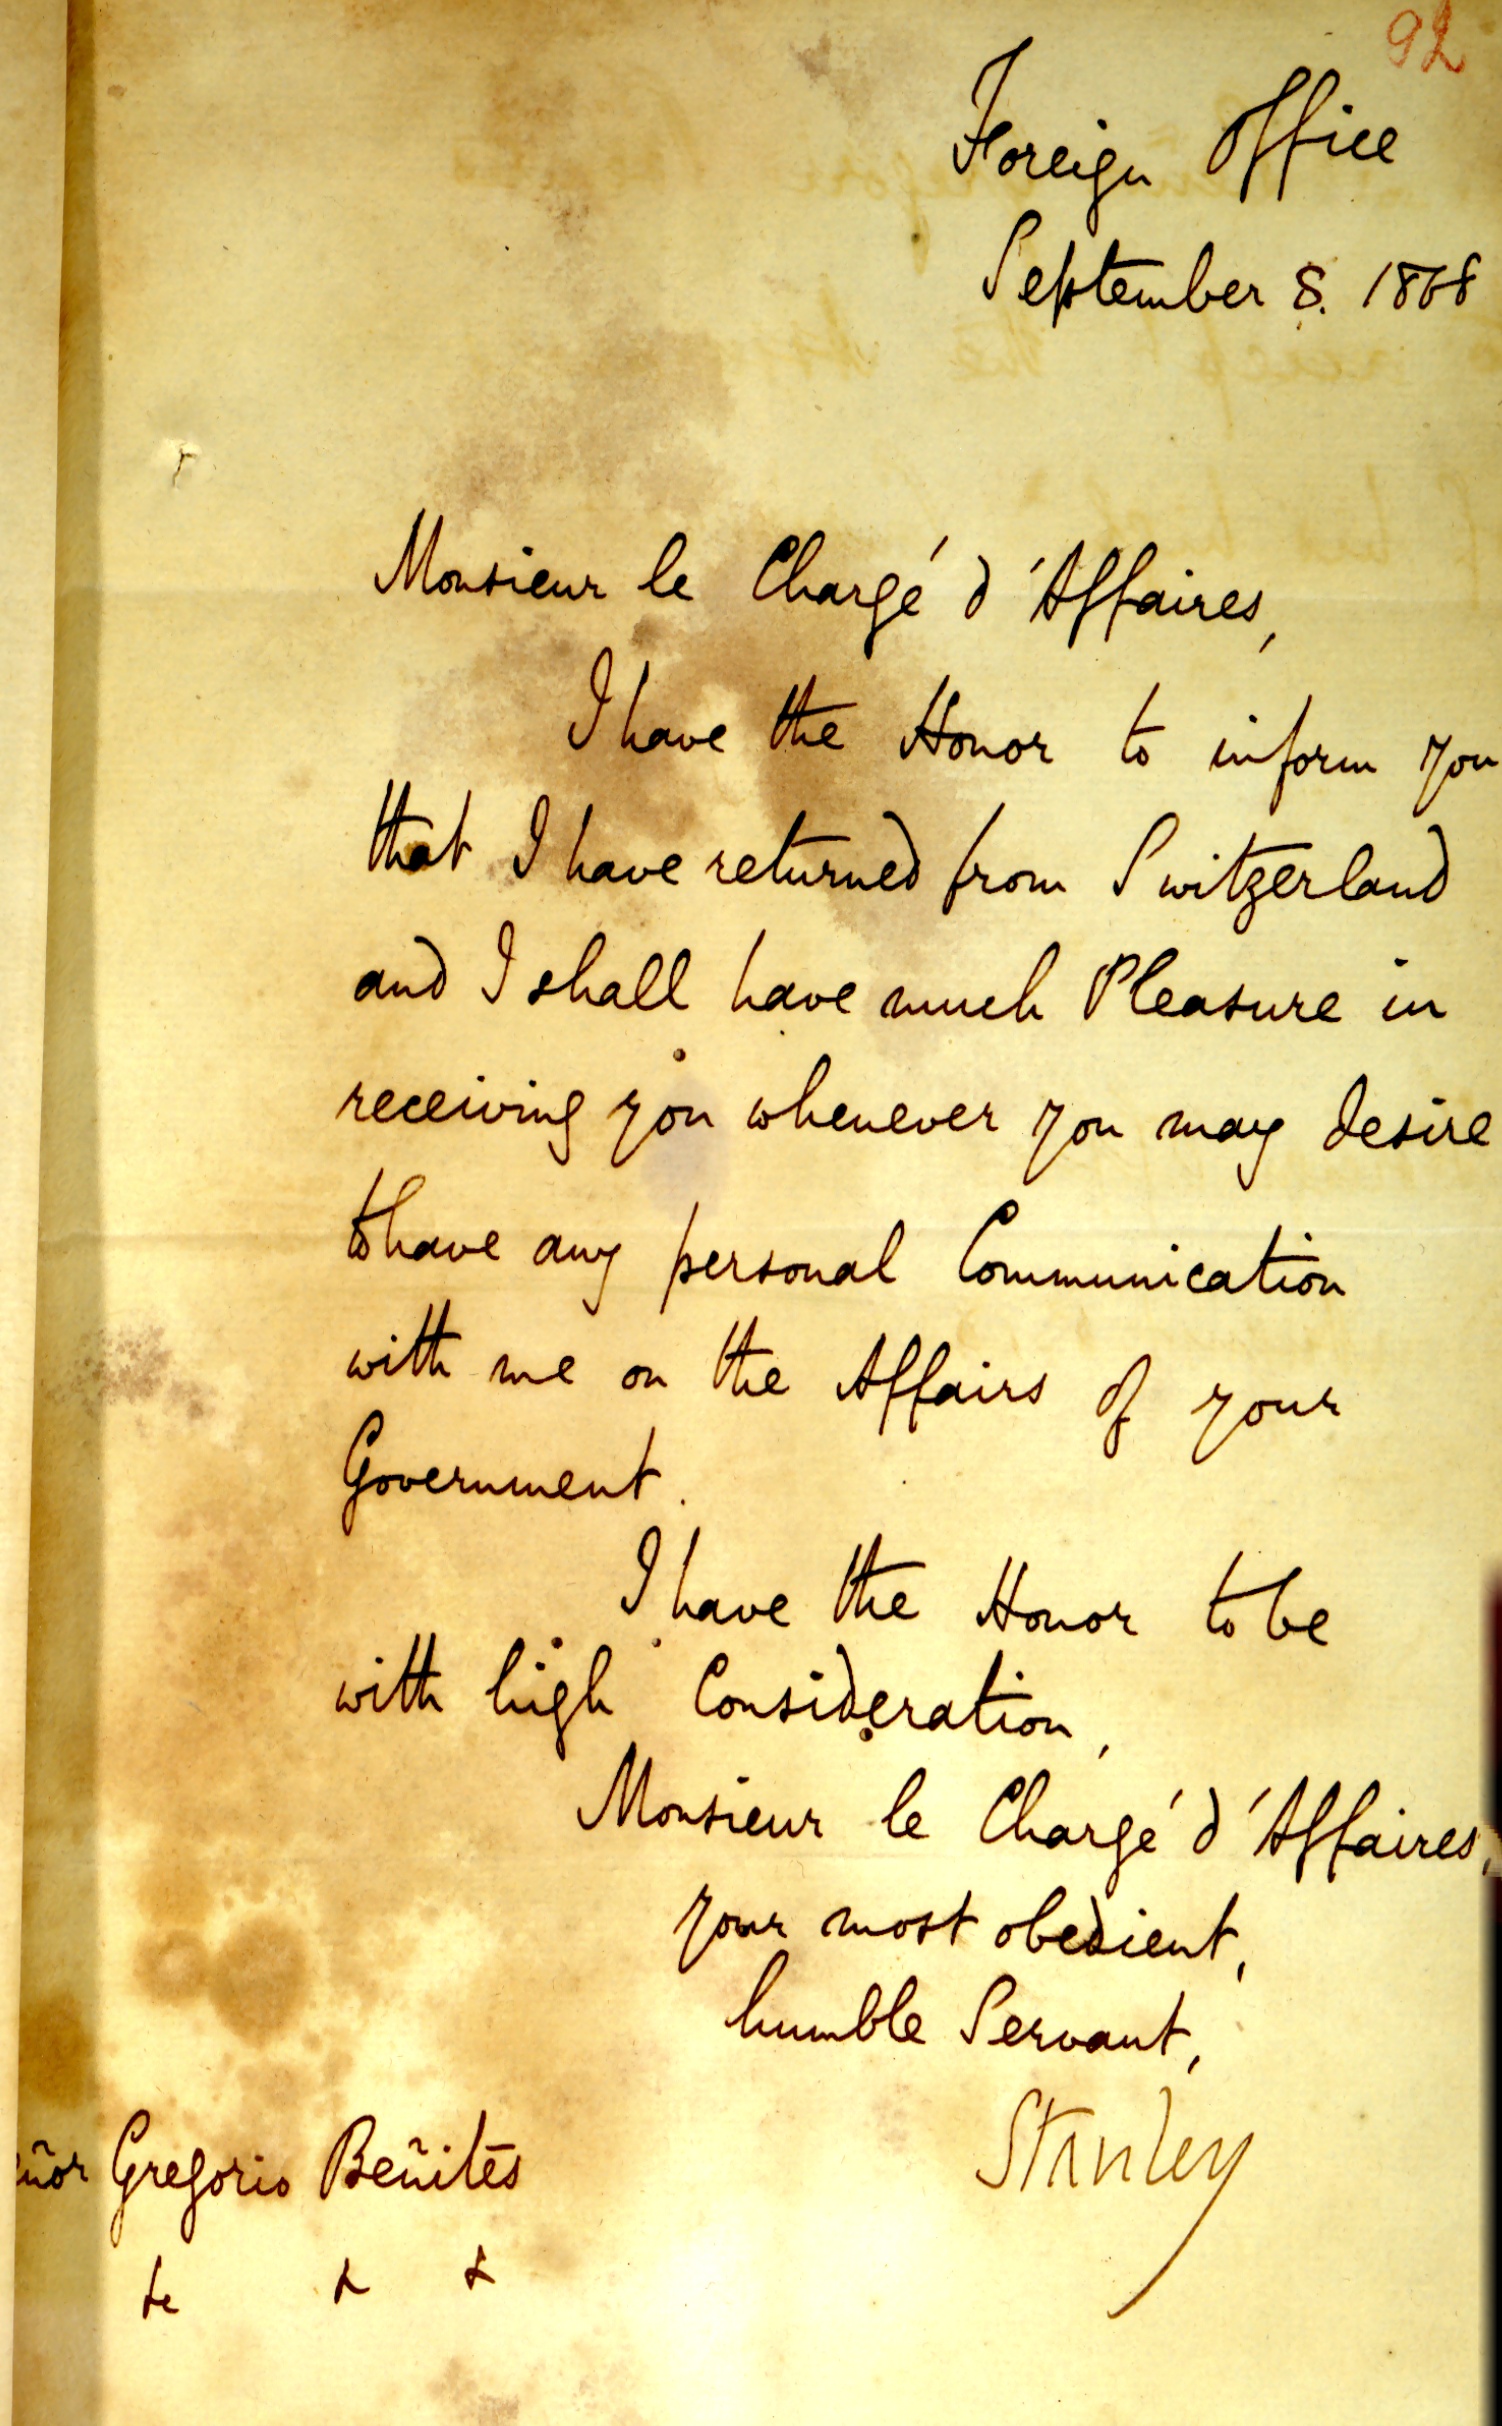 92
Foreign Office
September 8. 1868
Monsieur le Chargé d'Affaires,
I have the Honor to inform you
that I have returned from Switzerland
and I shall have much Pleasure in
receiving you whenever you may desire
to have any personal Communication
with me on the Affairs of your
Government.
I have the Honor to be
with high Consideration,
Monsieur le Chargé d'Affaires,
your most obedient,
humble Servant,
Stanley
eñor Gregorio Beñites
&c & &